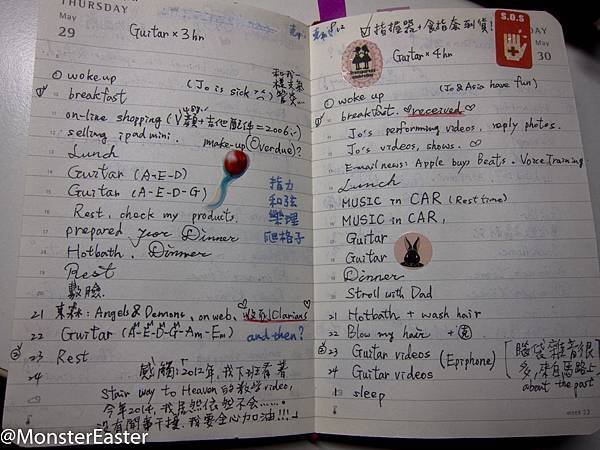 THURSDAY
May
29
Guitar × 3 hr
① woke up
(Jo is sick >"<)
breakfast
on-line shopping
= 2006
selling ipad mini.
make-up (Overdue)?
Lunch
Guitar (A-E-D)
Guitar (A-E-D-G)
Rest, check my products,
指力
和弦
樂理
爬格子
prepared for Dinner
Hotbath. Dinner
Rest
敷臉
21 東森: Angels & Demons, on web, 收到 Clarians
22 Guitar (A-E-D-G-Am-Em) and then?
23 Rest
24 感觸:「2012年,我下班看著
Stair way to Heaven 的教學video,
今年2014,我居然依然不會……
沒有閒事干擾,我要全心加油!!!」
DAY
May
30
S.O.S
指握器 + 食指套到貨!
Guitar × 4 hr
① woke up
(Jo & Asia have fun)
breakfast. received
Jo's performing videos, reply photos.
Jo's videos, shows.
E-mail news: Apple buys Beats. Voice Training
Lunch
MUSIC in CAR (Rest time)
MUSIC in CAR,
Guitar
Guitar
Dinner
Stroll with Dad
21 Hotbath + wash hair
22 Blow my hair +
23 Guitar videos (Epiphone)
24 Guitar videos
腦袋雜音很
多,來自馬路上
about the past
1 sleep
week 22
@MonsterEaster